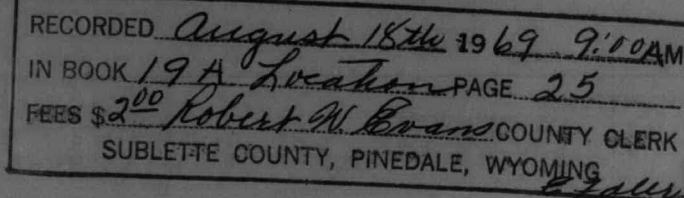 RECORDED August 18th 1969 9:00 AM
IN BOOK 19 A Location PAGE 25
FEES $2.00 Robert W Evans COUNTY CLERK
SUBLETTE COUNTY, PINEDALE, WYOMING